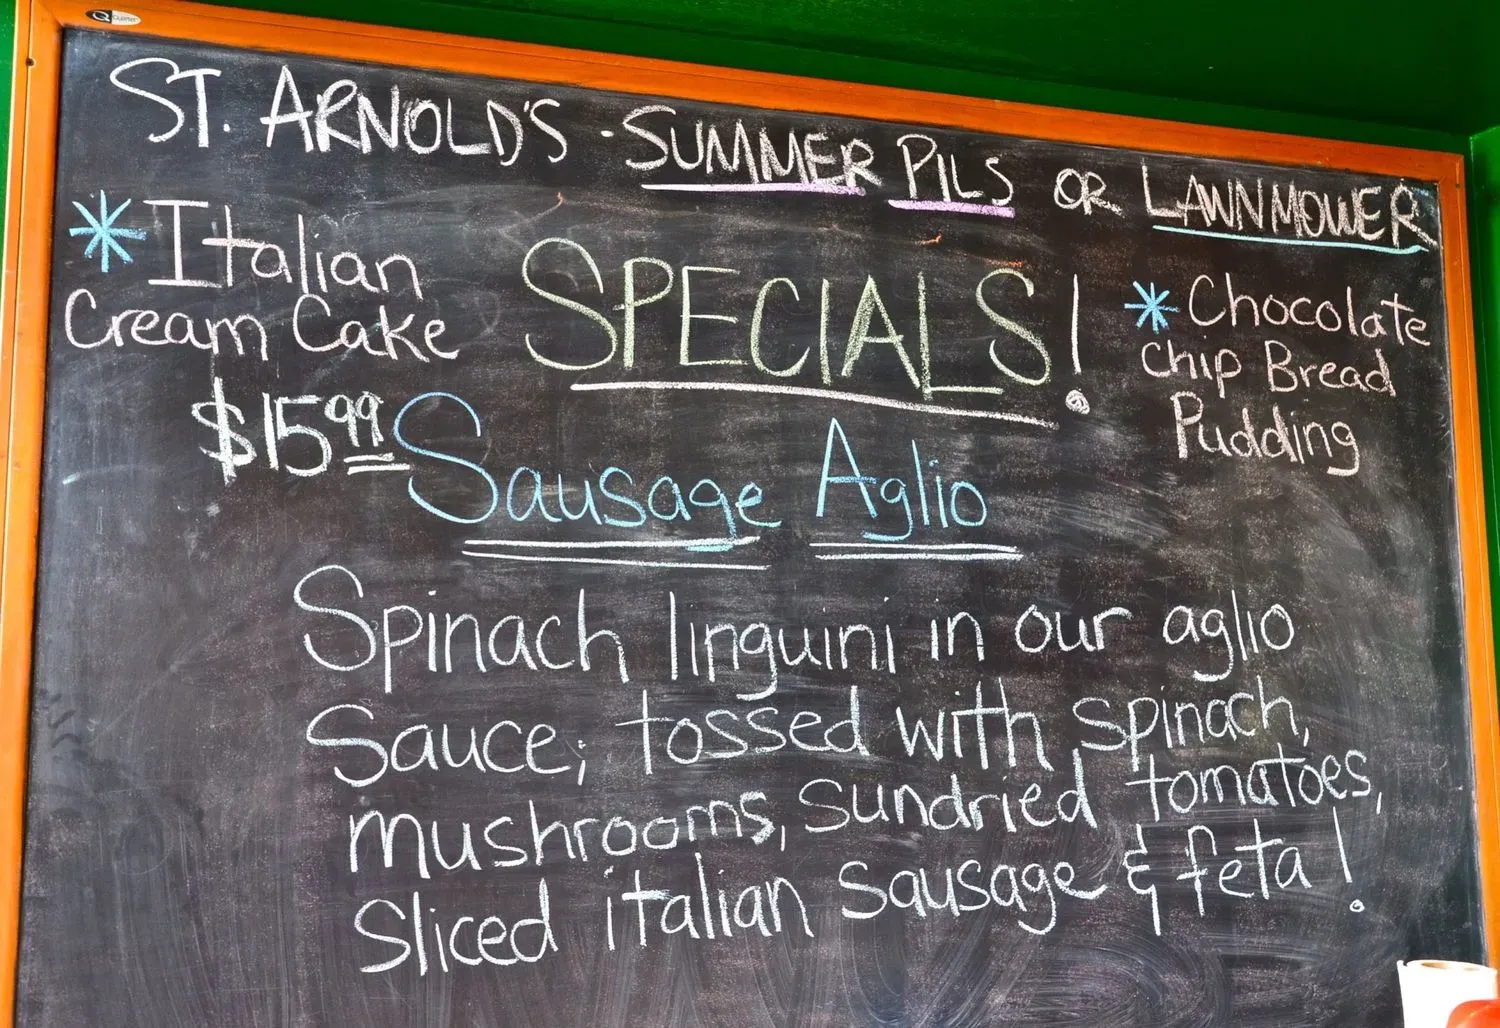 Quartet
ST. ARNOLD'S · SUMMER PILS OR LAWNMOWER
* Italian
Cream Cake
SPECIALS!
* Chocolate
chip Bread
Pudding
$15.99
Sausage Aglio
Spinach linguini in our aglio
Sauce; tossed with spinach,
mushrooms, sundried tomatoes,
Sliced italian sausage & feta!